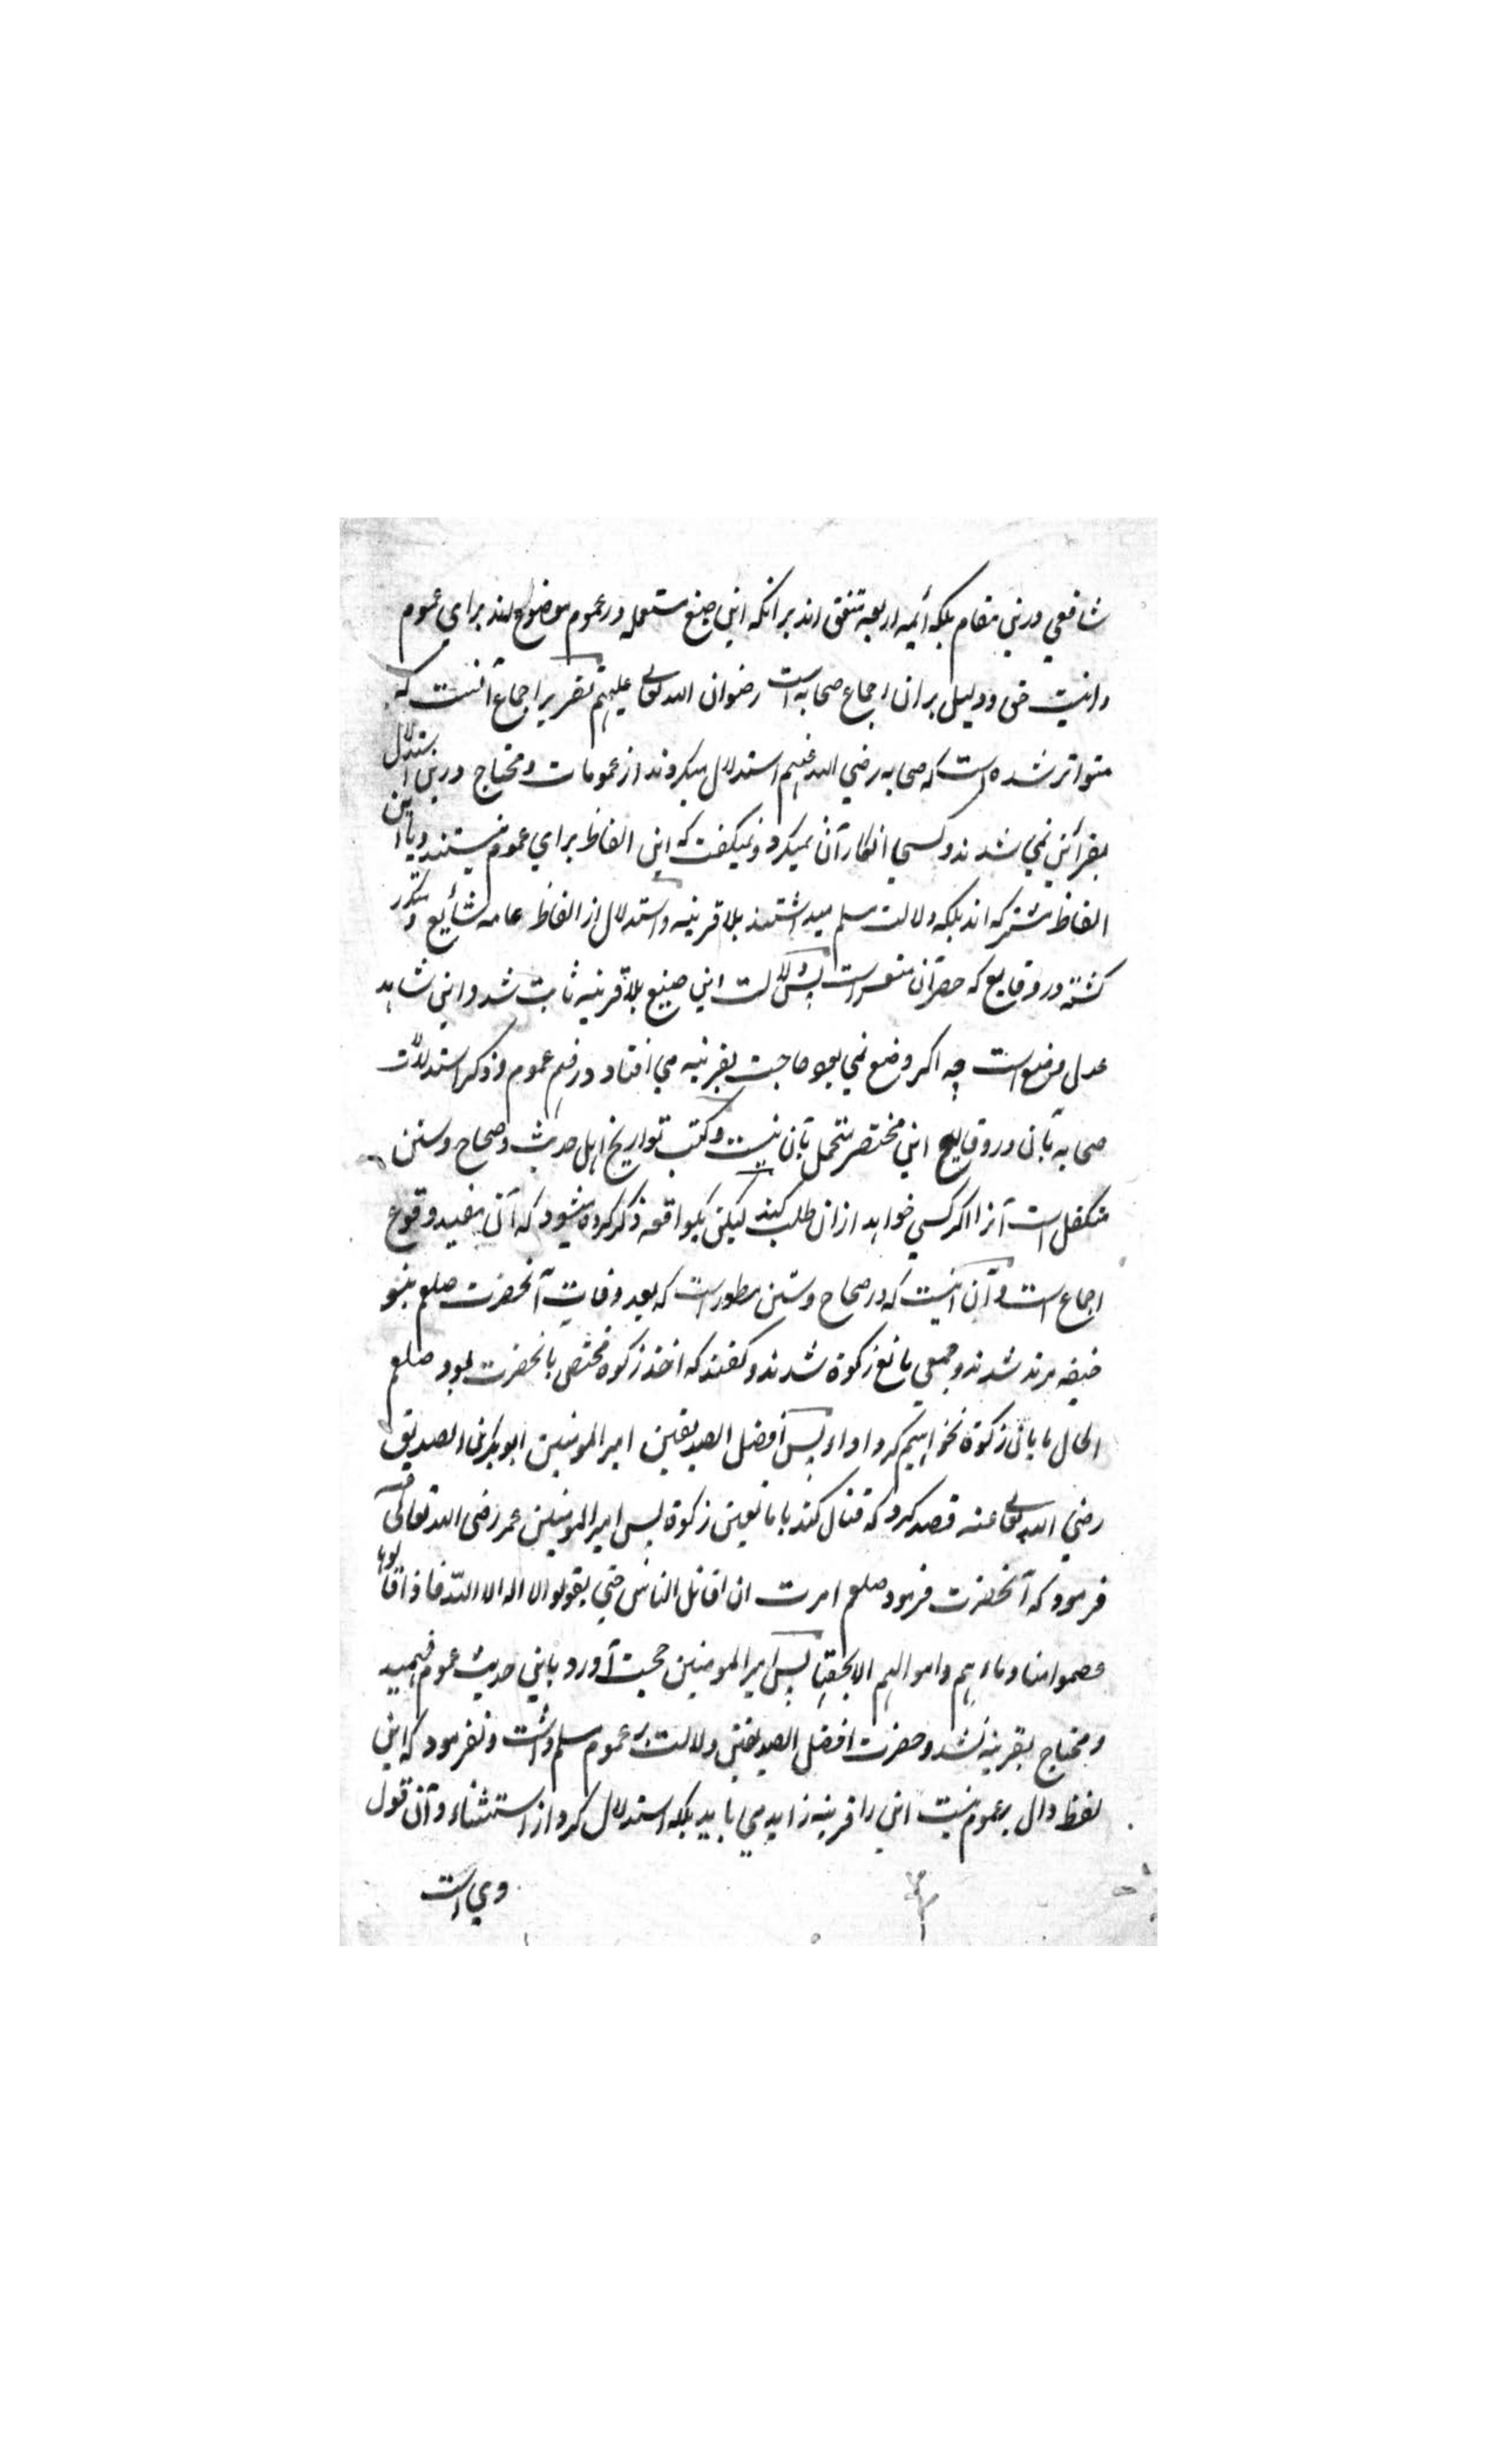 شافعي درين مقام بلكه أئمه اربعه متفق اند برانكه اين صيغ مستعمله در عموم موضوع اند براي عموم
و اينست حق و دليل بران اجماع صحابه است رضوان الله تعالى عليهم تقرير اجماع آنست كه
متواتر شده است كه صحابه رضي الله عنهم استدلال ميكردند از عمومات و محتاج درين استدلال
بقرائن نمي شدند و كسي انكار آن نميكرد و نميكفت كه اين الفاظ براي عموم نيستند و يا اين
الفاظ مشتركه اند بلكه دلالت مسلم ميداشتند بلا قرينه و استدلال از الفاظ عامه شايع و متكرر
كشته در وقايع كه حصر آن متعسر است پس دلالت اين صيغ بلا قرينه ثابت شد و اين شاهد
عدل وضع است چه اكر وضع نمي بود حاجت بقرينه مي افتاد در فهم عموم و ذكر استدلالات
صحابه بآن در وقايع اين مختصر متحمل بآن نيست و كتب تواريخ اهل حديث و صحاح و سنن
متكفل است آنرا اكر كسي خواهد ازان طلب كند ليكن يكواقعه ذكر كرده ميشود كه آن مفيد وقوع
اجماع است و آن اينست كه در صحاح و سنن مسطور است كه بعد وفات آنحضرت صلعم بنو
حنيفه مرتد شدند و جمعي مانع زكوة شدند و كفتند كه اخذ زكوة مختص بآنحضرت بود صلعم
الحال ما بآن زكوة نخواهيم كرد ادا و پس أفضل الصديقين امير المومنين ابو بكر ن الصديق
رضي الله تعالى عنه قصد كرد كه قتال كند با مانعين زكوة پس امير المومنين عمر رضي الله تعالى عنه
فرمود كه آنحضرت فرمود صلعم امرت ان اقاتل الناس حتي يقولوا لا اله الا الله فاذا قالوها
عصموا منا دماءهم و اموالهم الا بحقها پس امير المومنين حجت آورد باين حديث عموم فهميد
و محتاج بقرينه نشد و حضرت افضل الصديقين دلالت بر عموم مسلم داشت و نفرمود كه اين
لفظ دال بر عموم نيست اين را قرينه زايد مي بايد بلكه استدلال كرد از استثناء و آن قول
وي است